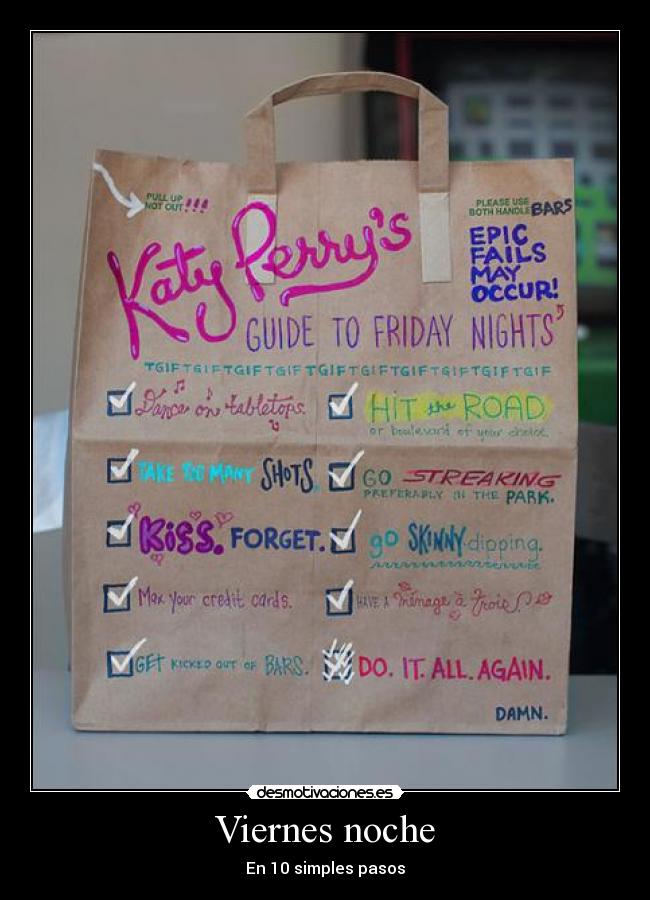 PULL UP
NOT OUT!!!
PLEASE USE
BOTH HANDLE BARS
Katy Perry's
EPIC
FAILS
MAY
OCCUR!
GUIDE TO FRIDAY NIGHTS
TGIFTGIFTGIFTGIFTGIFTGIFTGIFTGIFTGIFTGIF
Dance on tabletops.
HIT the ROAD
or boulevard of your choice.
TAKE TOO MANY SHOTS.
GO STREAKING
PREFERABLY IN THE PARK.
KiSS. FORGET.
go SKINNY dipping.
Max your credit cards.
HAVE A ménage à trois
GET KICKED OUT OF BARS.
DO. IT. ALL. AGAIN.
DAMN.
desmotivaciones.es
Viernes noche
En 10 simples pasos